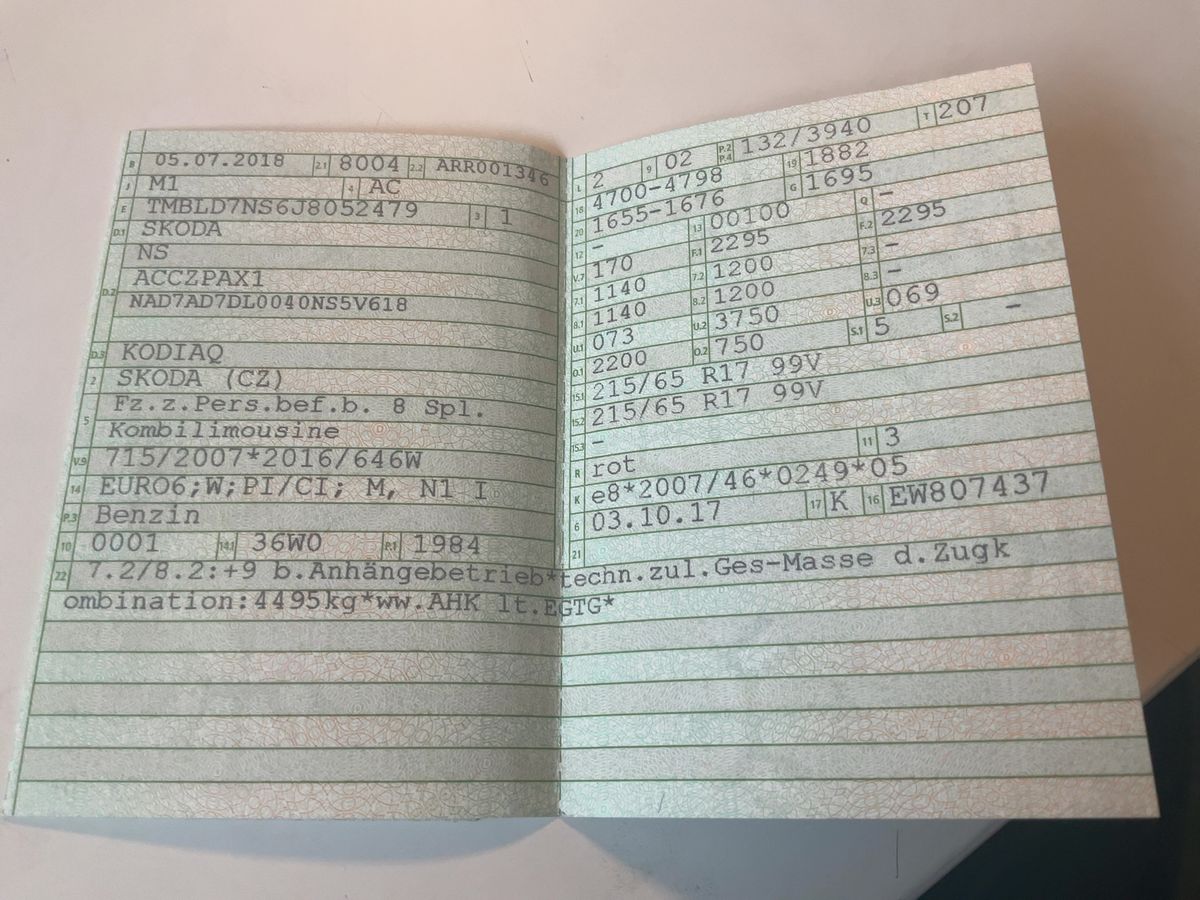 B 05.07.2018 2.1 8004 2.2 ARR001346
J M1 4 AC
E TMBLD7NS6J8052479 3 1
D.1 SKODA
NS
D.2 ACCZPAX1
NAD7AD7DL0040NS5V618
D.3 KODIAQ
2 SKODA (CZ)
5 Fz.z.Pers.bef.b. 8 Spl.
Kombilimousine
V.9 715/2007*2016/646W
14 EURO6;W;PI/CI; M, N1 I
P.3 Benzin
10 0001 14.1 36W0 P.1 1984
L 2 9 02 P.2 P.4 132/3940 T 207
18 4700-4798 19 1882
20 1655-1676 G 1695
12 – 13 00100 Q –
V.7 170 F.1 2295 F.2 2295
7.1 1140 7.2 1200 7.3 –
8.1 1140 8.2 1200 8.3 –
U.1 073 U.2 3750 U.3 069
O.1 2200 O.2 750 S.1 5 S.2 –
15.1 215/65 R17 99V
15.2 215/65 R17 99V
15.3 –
R rot 11 3
K e8*2007/46*0249*05
6 03.10.17 17 K 16 EW807437
21
22 7.2/8.2:+9 b.Anhängebetrieb*techn.zul.Ges-Masse d.Zugk
ombination:4495kg*ww.AHK lt.EGTG*